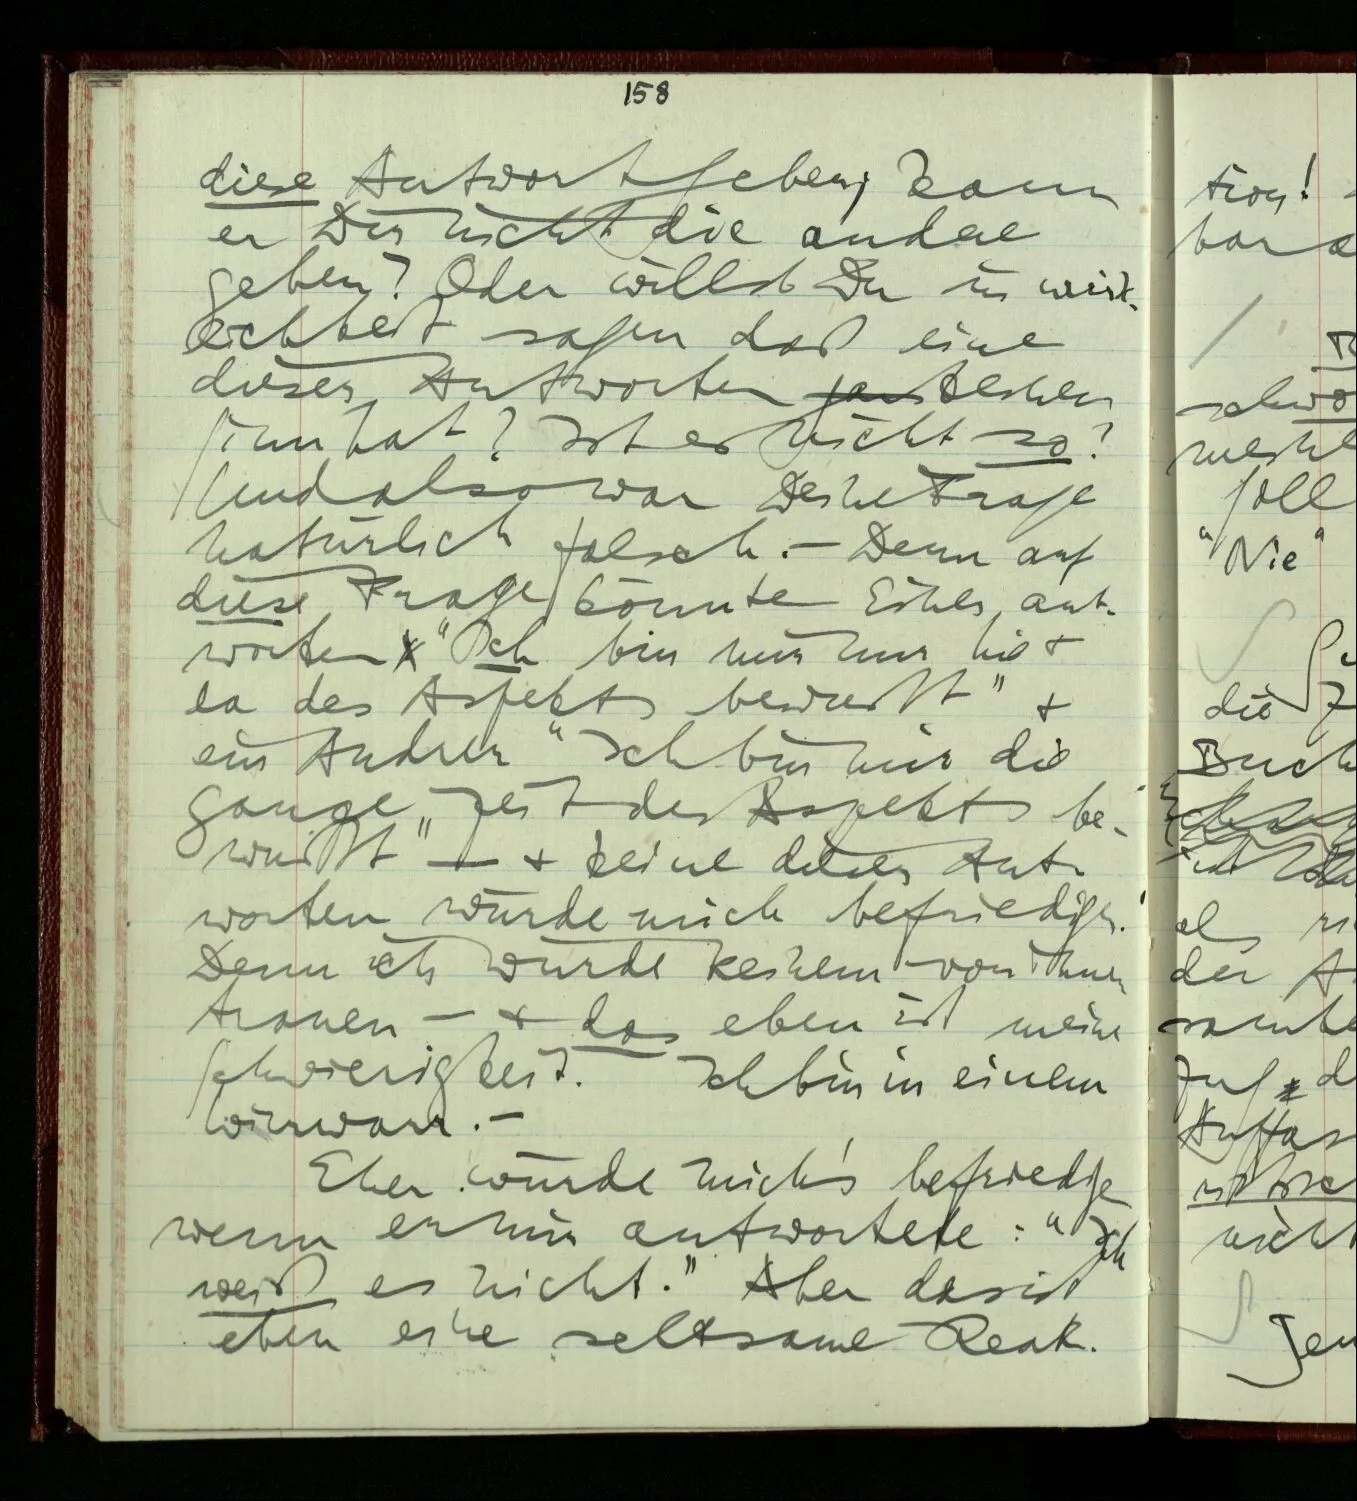 158
diese Antwort geben, kann
er Dir nicht die andere
geben? Oder willst Du in wirk-
lichkeit sagen daß eine
dieser Antworten keinen
Sinn hat? Ist es nicht so?
Und also war Deine Frage
natürlich falsch. — Denn auf
diese Frage könnte Einer ant-
worten "Ich bin mir nur hie +
da des Aspekts bewußt" +
ein Andrer "Ich bin mir die
ganze Zeit des Aspekts be-
wußt" — + keine dieser Ant-
worten würde mich befriedigen.
Denn ich würde keinem von ihnen
trauen — + das eben ist meine
Schwierigkeit. Ich bin in einem
Wirrwarr. —
Eher würde mich's befriedigen
wenn er mir antwortete: "Ich
weiß es nicht." Aber das ist
eben eine seltsame Reak-
tion!
soll
"Nie"
die
Buch
der
nicht